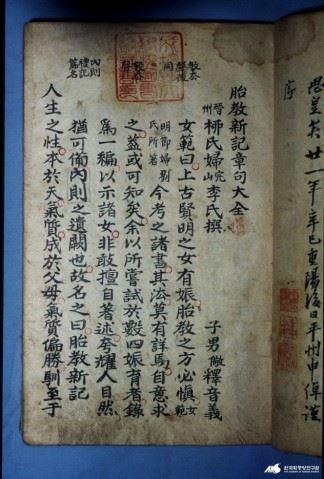 廿一年辛巳重陽後日平州申綽謹
序
胎敎新記章句大全
晉州柳氏婦完山李氏撰
子男儆釋音義
女範曰上古賢明之女有娠胎敎之方必愼女範
明節婦劉氏所著今考之諸書其法莫有詳焉自意求
之蓋或可知矣余以所嘗試於數四娠育者錄
爲一編以示諸女非敢擅自著述夸耀人目然
猶可備內則之遺闕也故名之曰胎敎新記
內則禮記篇名
人生之性本於天氣質成於父母氣質偏勝馴至于
한국학중앙연구원